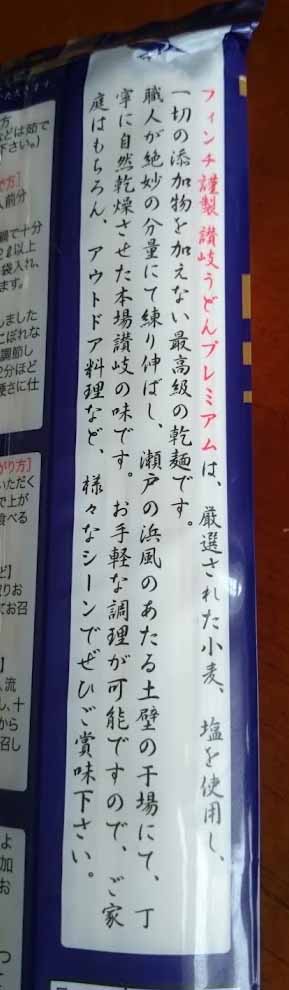 フィンチ謹製 讃岐うどんプレミアムは、厳選された小麦、塩を使用し、
一切の添加物を加えない最高級の乾麺です。
職人が絶妙の分量にて練り伸ばし、瀬戸の浜風のあたる土壁の干場にて、丁
寧に自然乾燥させた本場讃岐の味です。お手軽な調理が可能ですので、ご家
庭はもちろん、アウトドア料理など、様々なシーンでぜひご賞味下さい。
方
などは茹で
下さい。)
で方】
人前分
鍋で十分
2ℓ以上
袋入れ、
ます。
しました
こぼれな
調節し
2分ほど
硬さに仕
がり方】
いただく
で上が
食べる
ど】
取りお
てお召
】
、流
し、十
から
召し
よ
加
お
つ
て